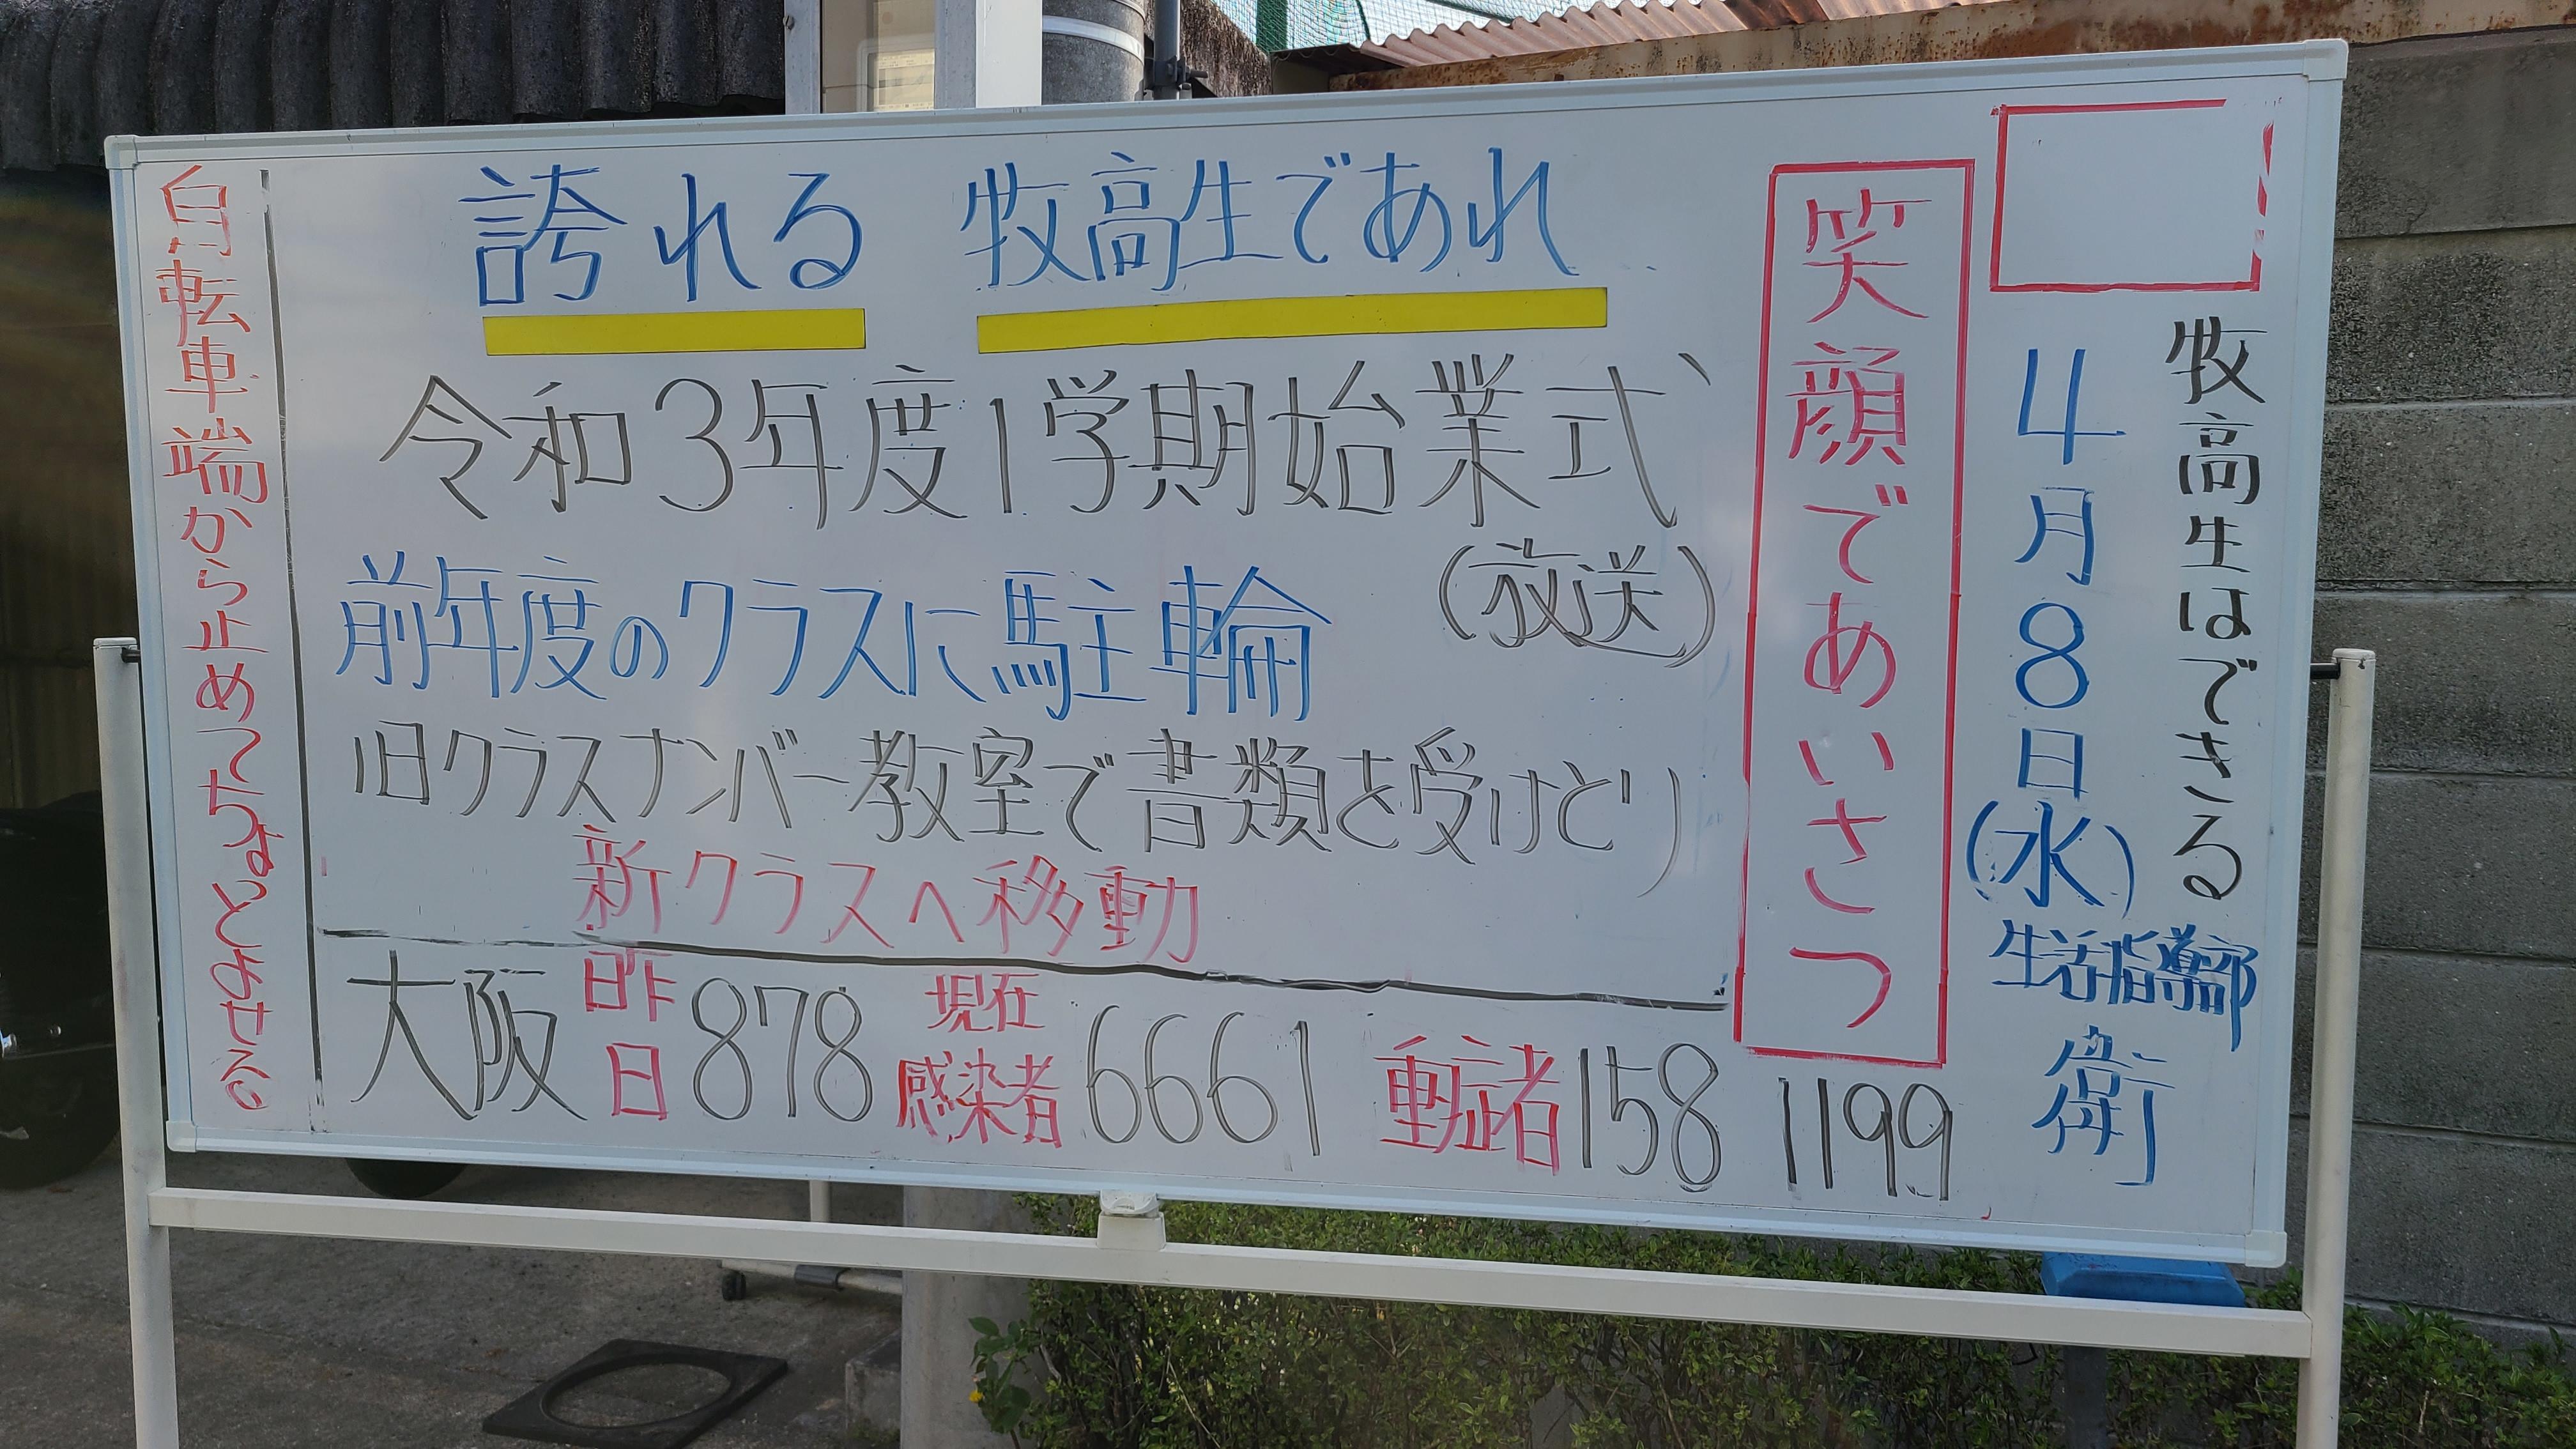 牧高生はできる
4月8日(水)
生活指導部
衛
笑顔であいさつ
誇れる 牧高生であれ
令和3年度1学期始業式
(放送)
前年度のクラスに駐輪
旧クラスナンバー教室で書類を受けとり
新クラスへ移動
大阪 昨日 878 現在感染者 6661 重症者 158 1199
自転車端から止めてちょっとよせる。